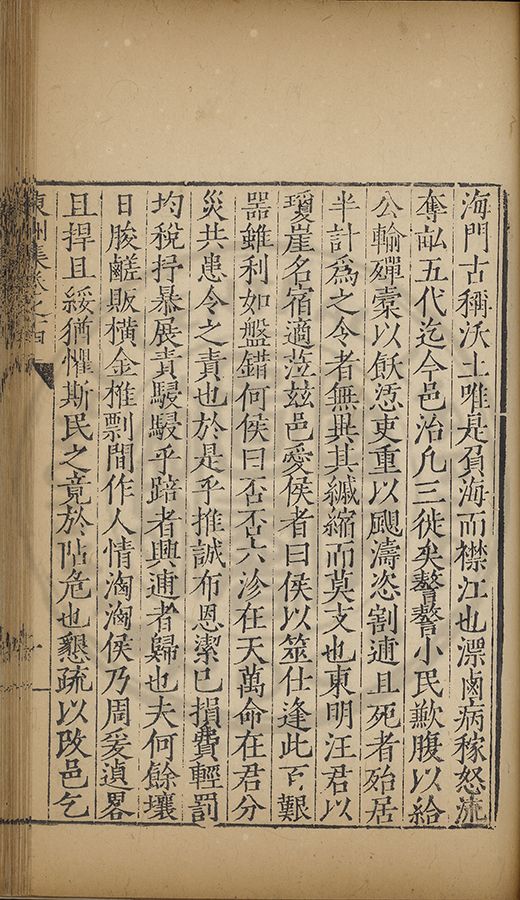 海門古稱沃土唯是負海而襟江也漂鹵病稼怒流
奪畝五代迄今邑治凡三徙矣謷謷小民歉腹以給
公輸殫橐以飫愆吏重以颶濤恣割逋且死者殆居
半計為之令者無異其緘縮而莫支也東明汪君以
瓊崖名宿適蒞兹邑愛侯者曰侯以筮仕逢此百艱
器雖利如盤錯何侯曰否否六沴在天萬命在君分
災共患令之責也於是乎推誠布恩潔己損費輕罰
均稅抒暴展責駸駸乎踣者興逋者歸也夫何餘壤
日朘鹺販橫金椎剽間作人情洶洶侯乃周爰遉畧
且捍且綏猶懼斯民之竟於阽危也懇疏以改邑乞
東州集卷之四